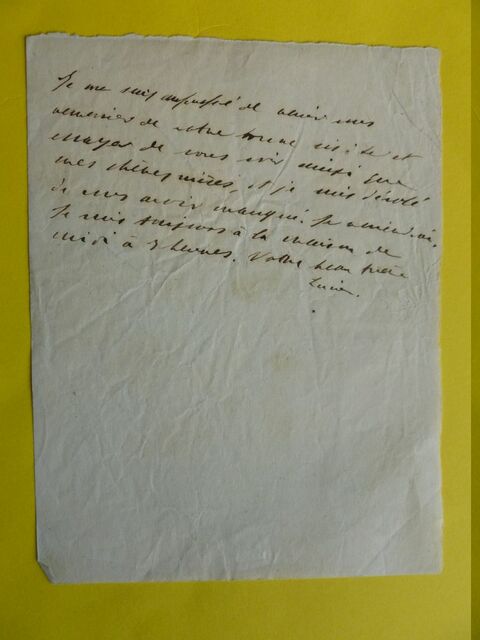 Je me suis empressé de venir vous
remercier de votre bonne visite et
essayer de vous voir ainsi que
mes chères nièces, et je suis désolé
de vous avoir manqué. Je
Je suis toujours à la maison de
midi à 3 heures. Votre beau frère
Lucien.